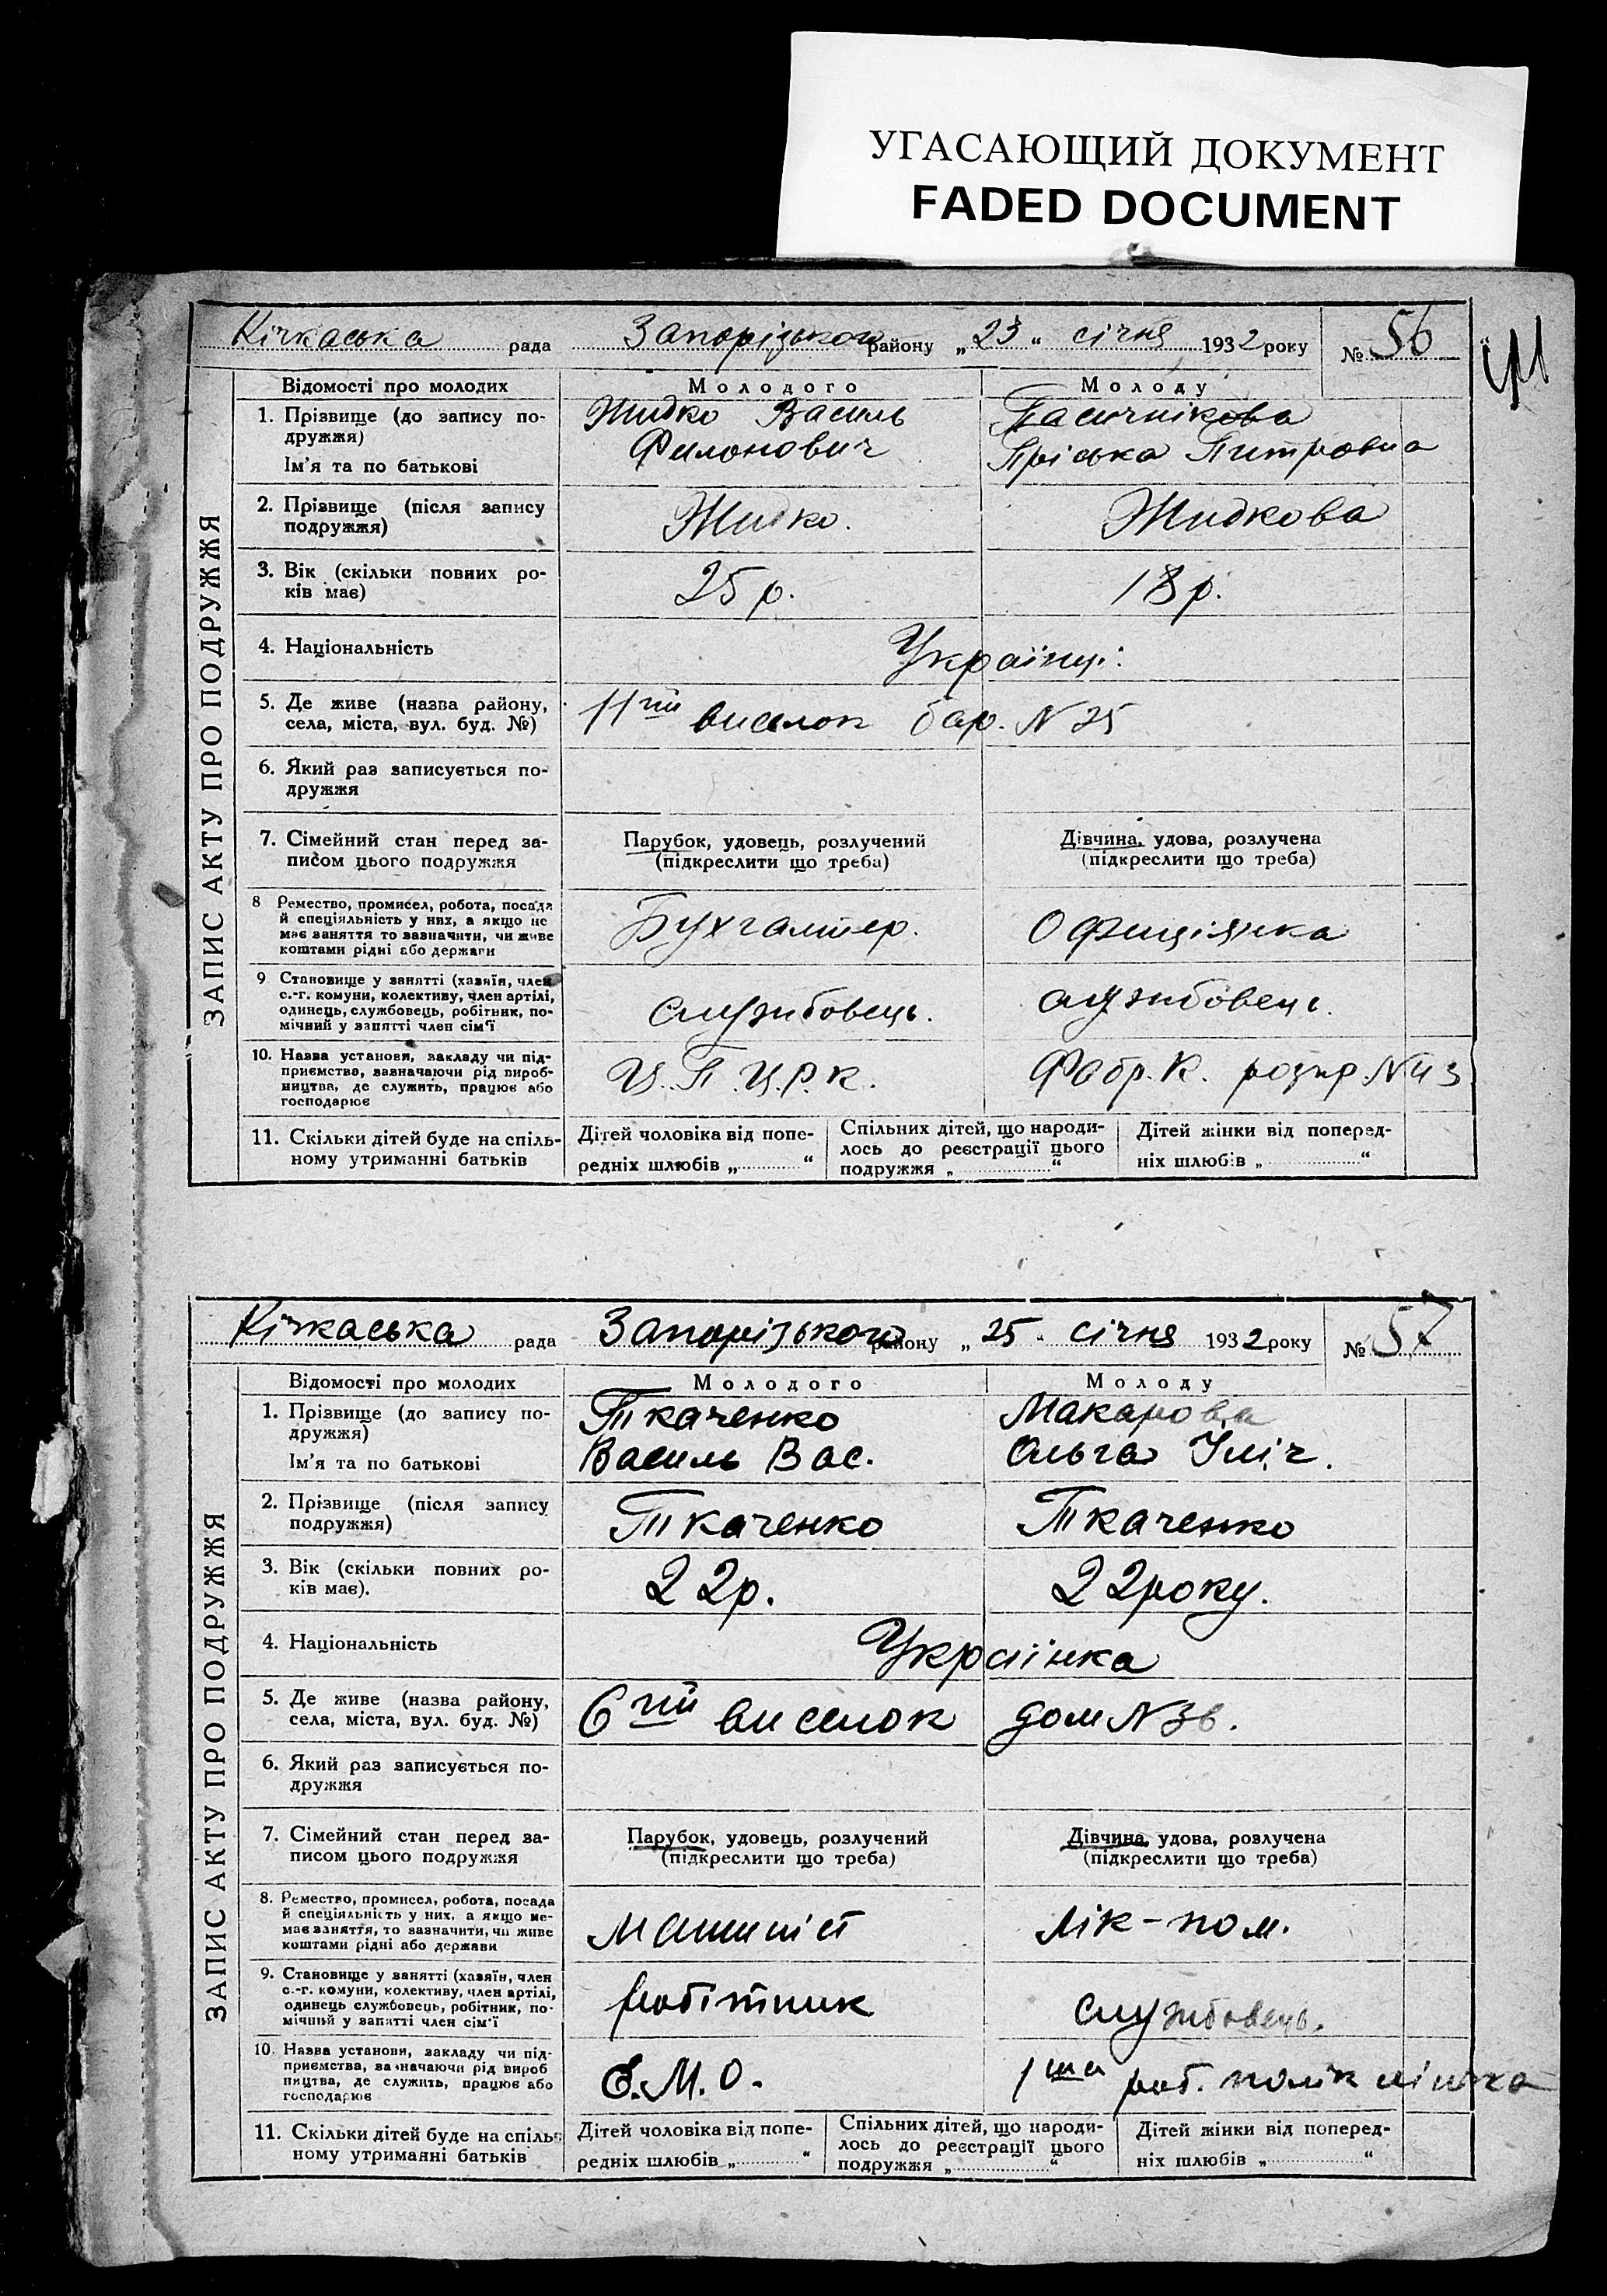 УГАСАЮЩИЙ ДОКУМЕНТ
FADED DOCUMENT
Кічкаська рада Запорізького району „23“ січня 1932 року № 56
ЗАПИС АКТУ ПРО ПОДРУЖЖЯ
Відомості про молодих Молодого Молоду
1. Прізвище (до запису по-
дружжя)
Ім'я та по батькові
Жидко Василь
Филонович
Пасичнікова
Пріська Питровна
2. Прізвище (після запису
подружжя)
Жидко. Жидкова
3. Вік (скільки повних ро-
ків має)
25 р. 18 р.
4. Національність
Українці
5. Де живе (назва району,
села, міста, вул. буд. №)
11тий виселок бар. N 25
6. Який раз записується по-
дружжя
7. Сімейний стан перед за-
писом цього подружжя
Парубок, удовець, розлучений
(підкреслити що треба)
Дівчина, удова, розлучена
(підкреслити що треба)
8 Ремество, промисел, робота, посада
й спеціяльність у них, а якщо не
має заняття то зазначити, чи живе
коштами рідні або держави
Бухгалтер. Офиціянка
9 Становище у занятті (хазяїн, член
с.-г. комуни, колективу, член артілі,
одинець, службовець, робітник, по-
мічний у занятті член сім'ї
службовець. службовець.
10. Назва установи, закладу чи під-
приємства, зазначаючи рід вироб-
ництва, де служить, працює або
господарює
Ц.П.Ц.Р.К. Фабр.К. розпр. N 43
11. Скільки дітей буде на спіль-
ному утриманні батьків
Дітей чоловіка від попе-
редніх шлюбів „ “
Спільних дітей, що народи-
лось до реєстрації цього
подружжя „ “
Дітей жінки від поперед-
ніх шлюбів „ “
Кічкаська рада Запорізького району „25“ січня 1932 року № 57
ЗАПИС АКТУ ПРО ПОДРУЖЖЯ
Відомості про молодих Молодого Молоду
1. Прізвище (до запису по-
дружжя)
Ім'я та по батькові
Ткаченко
Василь Вас.
Макарова
Ольга Іліч.
2. Прізвище (після запису
подружжя)
Ткаченко Ткаченко
3. Вік (скільки повних ро-
ків має).
22р. 22року.
4. Національність
Українка
5. Де живе (назва району,
села, міста, вул. буд. №)
6тий виселок дом N 36.
6. Який раз записується по-
дружжя
7. Сімейний стан перед за-
писом цього подружжя
Парубок, удовець, розлучений
(підкреслити що треба)
Дівчина, удова, розлучена
(підкреслити що треба)
8. Ремество, промисел, робота, посада
й спеціяльність у них, а якщо не-
має заняття, то зазначити, чи живе
коштами рідні або держави
машиніст лік-пом.
9. Становище у занятті (хазяїн, член
с.-г. комуни, колективу, член артілі,
одинець службовець, робітник, по-
мічний у занятті член сім'ї
робітник службовець.
10. Назва установи, закладу чи під-
приємства, зазначаючи рід вироб
ництва, де служить, працює або
господарює
Е.М.О. 1ша роб. поліклініка
11. Скільки дітей буде на спіль-
ному утриманні батьків
Дітей чоловіка від попе-
редніх шлюбів „ “
Спільних дітей, що народи-
лось до реєстрації цього
подружжя „ “
Дітей жінки від поперед-
ніх шлюбів „ “